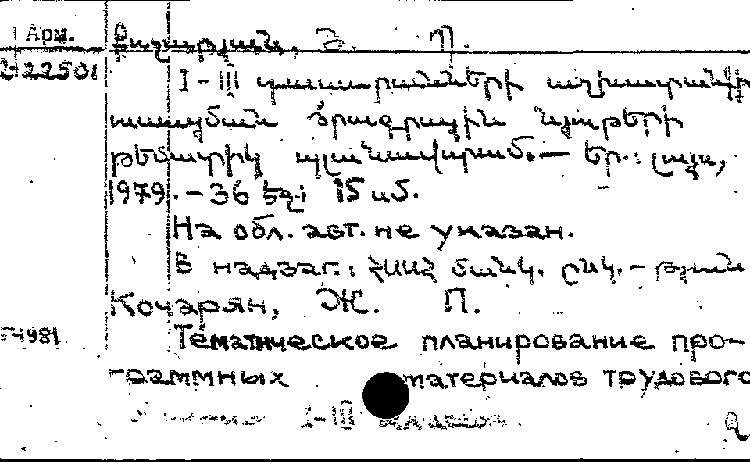 Арм.
Ժ. Պ.
2-22501 I-III դասարանների աշխատանքի
ուսուցման ծրագրային նյութերի
թեմատիկ պլանավորում. — Եր.: լույս,
1979. - 36 էջ; 15 սմ.
На обл. авт. не указан.
В надзаг.: ՀՍՍՀ մանկ.
Кочарян, Ж. П.
Г4981 Тематическое планирование про-
граммных материалов трудового
I-III классов